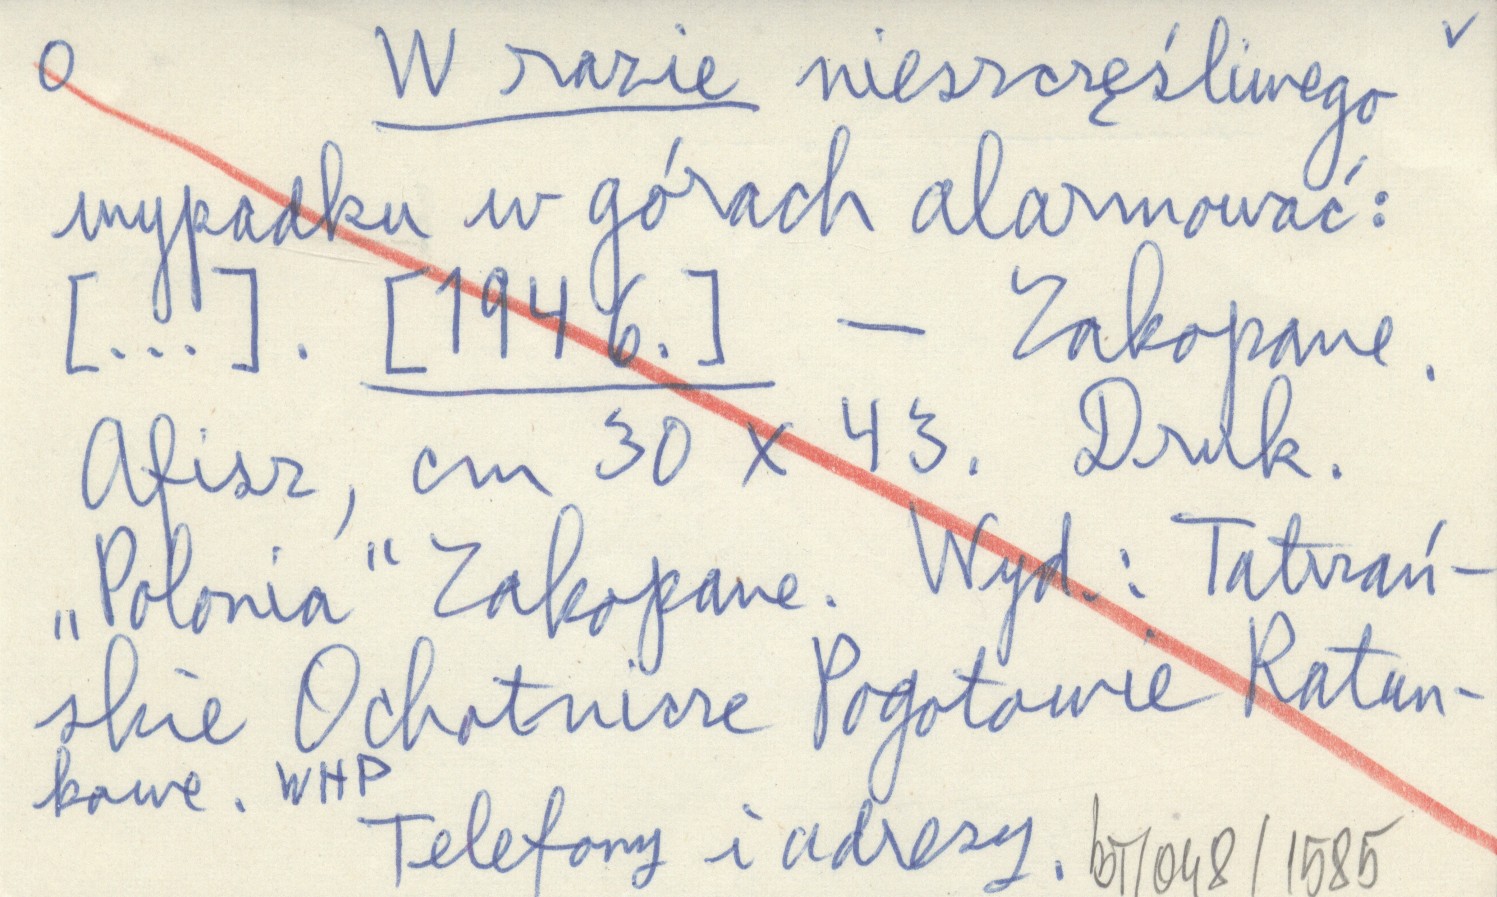 O W razie nieszczęśliwego v
wypadku w górach alarmować:
[...]. [1946.] — Zakopane.
Afisz, cm 30 x 43. Druk.
„Polonia" Zakopane. Wyd.: Tatrzań-
skie Ochotnicze Pogotowie Ratun-
kowe. WHP
Telefony i adresy. bT/048/1585